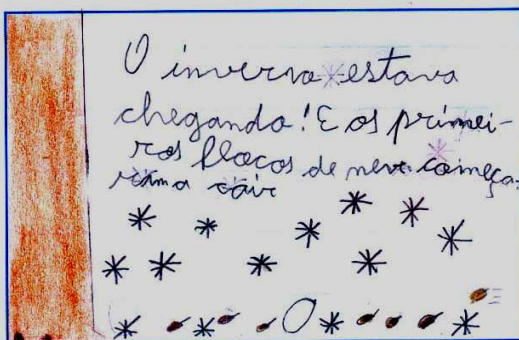 O inverno estava
chegando! E os primei-
ros flocos de neve começa-
ram a cair